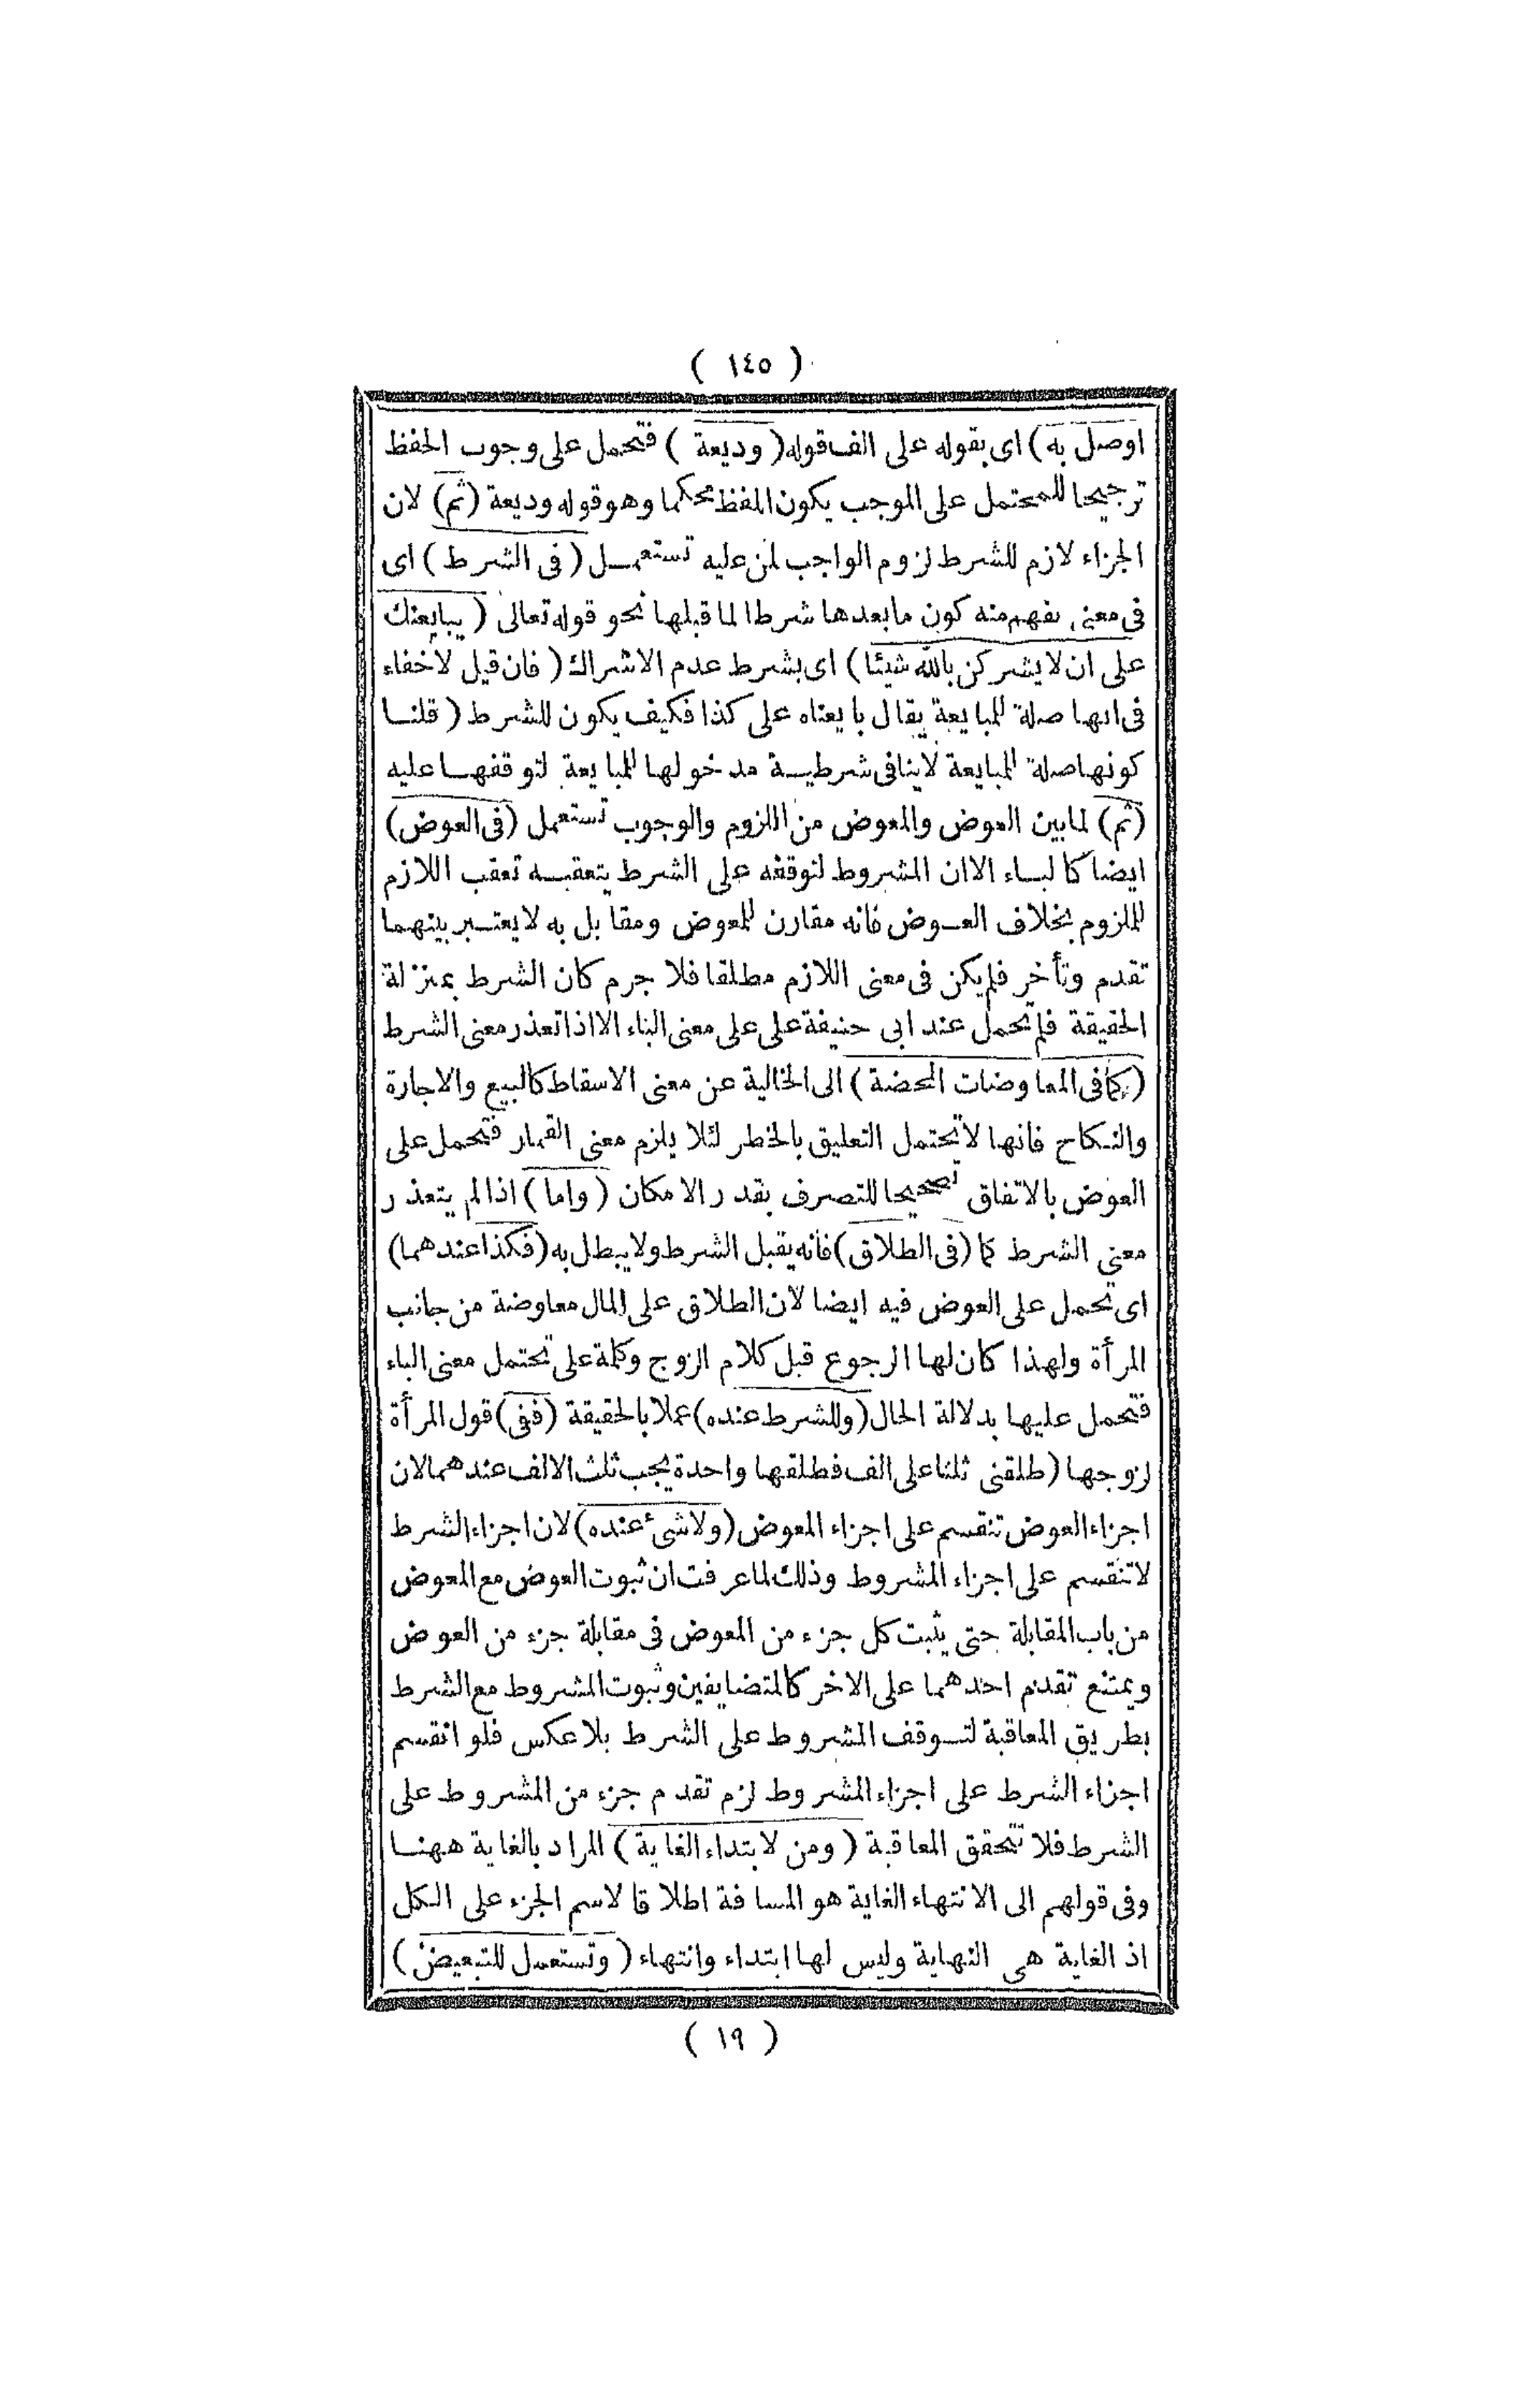 ( ١٤٥ )
اوصل به ) اى بقوله على الف قوله ( وديعة ) فتحمل على وجوب الحفظ
ترجيحا للمحتمل على الموجب يكون اللفظ محكما وهو قوله وديعة ( ثم ) لان
الجزاء لازم للشرط لزوم الواجب لمن عليه تستعمل ( فى الشرط ) اى
فى معنى يفهم منه كون ما بعدها شرطا لما قبلها نحو قوله تعالى ( يبايعنك
على ان لا يشركن بالله شيئا ) اى بشرط عدم الاشراك ( فان قيل لاخفاء
فى انها صلة للمبايعة يقال بايعناه على كذا فكيف يكون للشرط ( قلنا
كونها صلة للمبايعة لاينافى شرطية مدخولها للمبايعة لتوقفها عليه
( ثم ) لما بين العوض والمعوض من اللزوم والوجوب تستعمل ( فى العوض )
ايضا كالباء الا ان المشروط لتوقفه على الشرط يتعقبه تعقب اللازم
للملزوم بخلاف العوض فانه مقارن للمعوض ومقابل به لايعتبر بينهما
تقدم وتأخر فلم يكن فى معنى اللازم مطلقا فلا جرم كان الشرط بمنزلة
الحقيقة فلم تحمل عند ابى حنيفة على على معنى الباء الا اذا تعذر معنى الشرط
( كما فى المعاوضات المحضة ) الى الخالية عن معنى الاسقاط كالبيع والاجارة
والنكاح فانها لاتحتمل التعليق بالخطر لئلا يلزم معنى القمار فتحمل على
العوض بالاتفاق تصحيحا للتصرف بقدر الامكان ( واما ) اذا لم يتعذر
معنى الشرط كما ( فى الطلاق ) فانه يقبل الشرط ولا يبطل به ( فكذا عندهما )
اى تحمل على العوض فيه ايضا لان الطلاق على المال معاوضة من جانب
المرأة ولهذا كان لها الرجوع قبل كلام الزوج وكلمة على تحتمل معنى الباء
فتحمل عليها بدلالة الحال ( وللشرط عنده ) عملا بالحقيقة ( ففى ) قول المرأة
لزوجها ( طلقنى ثلثا على الف فطلقها واحدة يجب ثلث الالف عندهما لان
اجزاء العوض تنقسم على اجزاء المعوض ( ولاشئ عنده ) لان اجزاء الشرط
لاتنقسم على اجزاء المشروط وذلك لما عرفت ان ثبوت العوض مع المعوض
من باب المقابلة حتى يثبت كل جزء من المعوض فى مقابلة جزء من العوض
ويمتنع تقدم احدهما على الاخر كالمتضايفين وثبوت المشروط مع الشرط
بطريق المعاقبة لتوقف المشروط على الشرط بلا عكس فلو انقسم
اجزاء الشرط على اجزاء المشروط لزم تقدم جزء من المشروط على
الشرط فلا تتحقق المعاقبة ( ومن لابتداء الغاية ) المراد بالغاية ههنا
وفى قولهم الى الانتهاء الغاية هو المسافة اطلاقا لاسم الجزء على الكل
اذ الغاية هى النهاية وليس لها ابتداء وانتهاء ( وتستعمل للتبعيض )
( ١٩ )